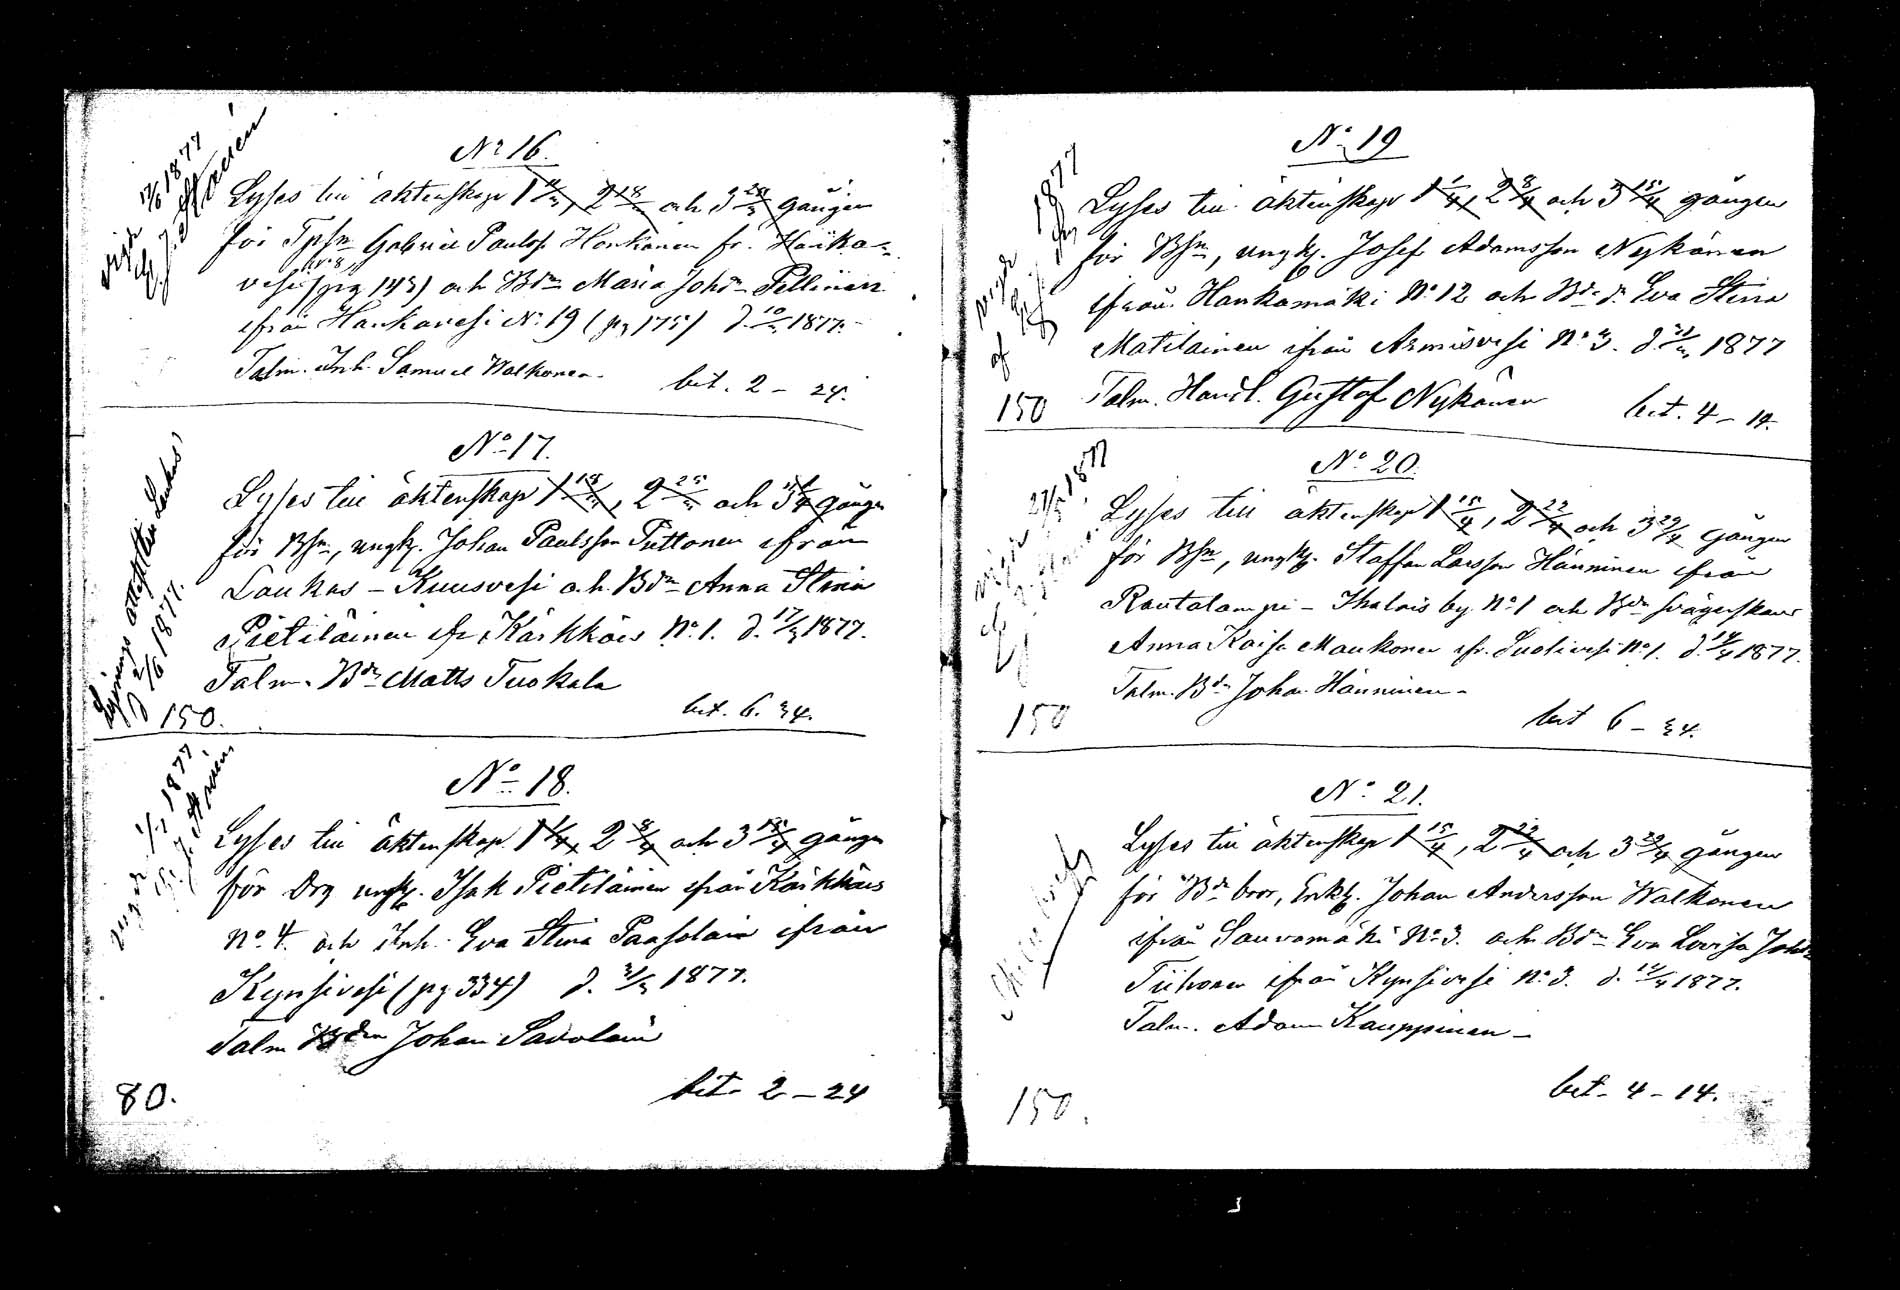 No 16.
Lysес till äktenskap 1 11/3, 2 18/3 och 3 25/3 gången
för Tpsn Gabriel Paulss. Honkanen fr. Hauka-
vesi No 8 (pg 143) och Bdn Maria Johdr Pellinen
ifrån Hankavesi No 19 (pg 175) d. 10/3 1877.
Talm. Inh. Samuel Walkonen.
bet. 2 - 24.
vigde 17/6 1877
No 17.
Lyses till äktenskap 1 18/3, 2 25/3 och 3 1/4 gången
för Bsn, ungk. Johan Paulsson Puttonen ifrån
Laukas - Kuusvesi och Bdn Anna Stina
Pietiläinen ifr. Kärkkäis No 1. d. 17/3 1877.
Talm. Bdn Matts Tuokala
bet. 6. 34.
Lysnings attest till Laukas
d 2/6 1877.
150.
No 18.
Lyses till äktenskap 1 1/4, 2 8/4 och 3 15/4 gången
för Drg ungk. Isak Pietiläinen ifrån Kärkkäis
No 4. och Inh. Eva Stina Paasolain ifrån
Kynsivesi (pg 334) d. 31/3 1877.
Talm Bden Johan Savolain
bet. 2 - 24
1/7 1877
80.
No 19
Lyses till äktenskap 1 1/4, 2 8/4 och 3 15/4 gången
för Bsn, ungk. Josef Adamsson Nykänen
ifrån Hankamäki No 12 och Bdedr Eva Stina
Matilainen ifrån Armisvesi No 3. d. 31/3 1877
Talm. Handl. Gustaf Nykänen
bet. 4 - 14.
1877
150
No 20.
Lyses till äktenskap 1 15/4, 2 22/4 och 3 29/4 gången
för Bsn, ungk. Staffan Larsson Hänninen ifrån
Rautalampi - Ihalais by No 1 och Bdn svägerskan
Anna Kaisa Maukonen ifr. Suolivesi No 1. d. 14/4 1877.
Talm. Bdn Johan Hänninen -
bet 6 - 34.
27/5 1877
150
No 21.
Lyses till äktenskap 1 15/4, 2 22/4 och 3 29/4 gången
för Bdn bror, Enkl. Johan Andersson Walkonen
ifrån Sauvomäki No 3. och Bdn Eva Lovisa Johdr
Tiihonen ifrån Kynsivesi No 3. d. 14/4 1877.
Talm. Adam Kauppinen -
bet. 4 - 14.
150.
3